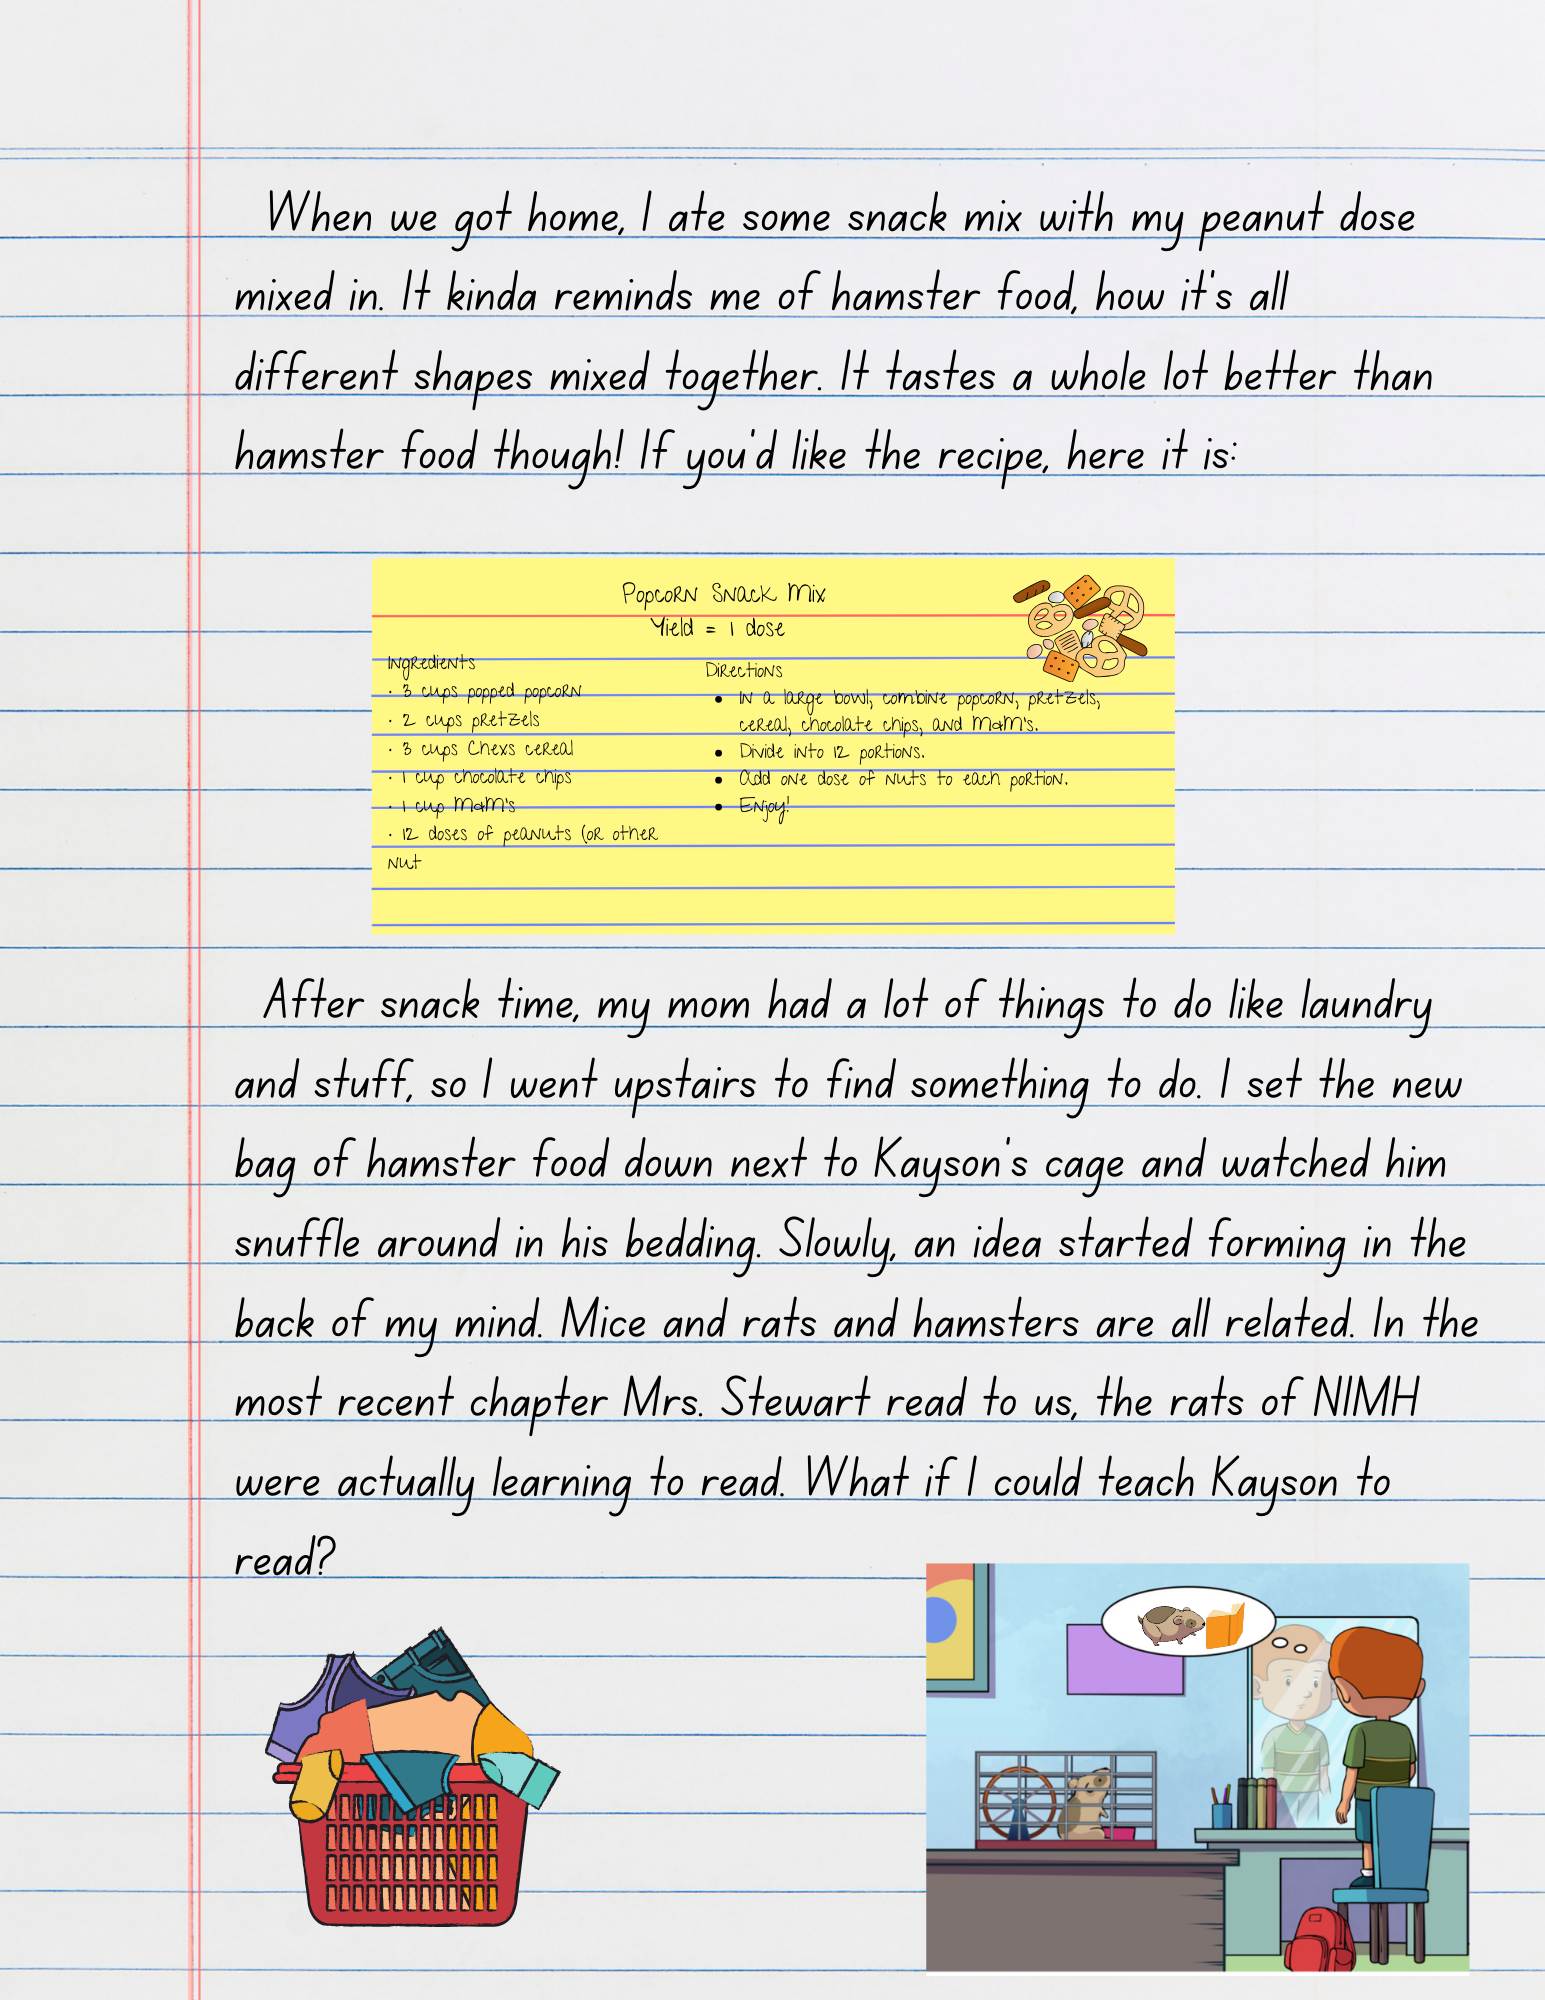 When we got home, I ate some snack mix with my peanut dose
mixed in. It kinda reminds me of hamster food, how it's all
different shapes mixed together. It tastes a whole lot better than
hamster food though! If you'd like the recipe, here it is:
Popcorn Snack Mix
Yield = 1 dose
Ingredients
· 3 cups popped popcorn
· 2 cups pretzels
· 3 cups Chexs cereal
· 1 cup chocolate chips
· 1 cup M&M's
· 12 doses of peanuts (or other
nut
Directions
• In a large bowl, combine popcorn, pretzels,
cereal, chocolate chips, and M&M's.
• Divide into 12 portions.
• Add one dose of nuts to each portion.
• Enjoy!
After snack time, my mom had a lot of things to do like laundry
and stuff, so I went upstairs to find something to do. I set the new
bag of hamster food down next to Kayson's cage and watched him
snuffle around in his bedding. Slowly, an idea started forming in the
back of my mind. Mice and rats and hamsters are all related. In the
most recent chapter Mrs. Stewart read to us, the rats of NIMH
were actually learning to read. What if I could teach Kayson to
read?